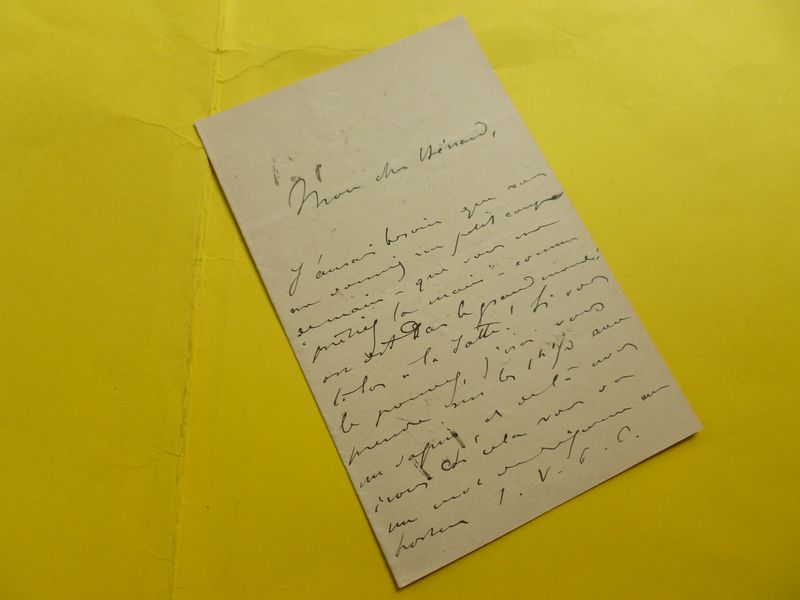 Mon cher Bénard,
J'aurais besoin que vous
me donniez un petit coup
demain – que vous me
prêtiez "la main" – comme
on dit dans le grand monde,
à la Salle! Si vous
le pouvez, j'irai vous
prendre sur les 1h 1/2 avec
un sapin et de là nous
irons si cela vous va
un mot en réponse au
porteur S. V. P.